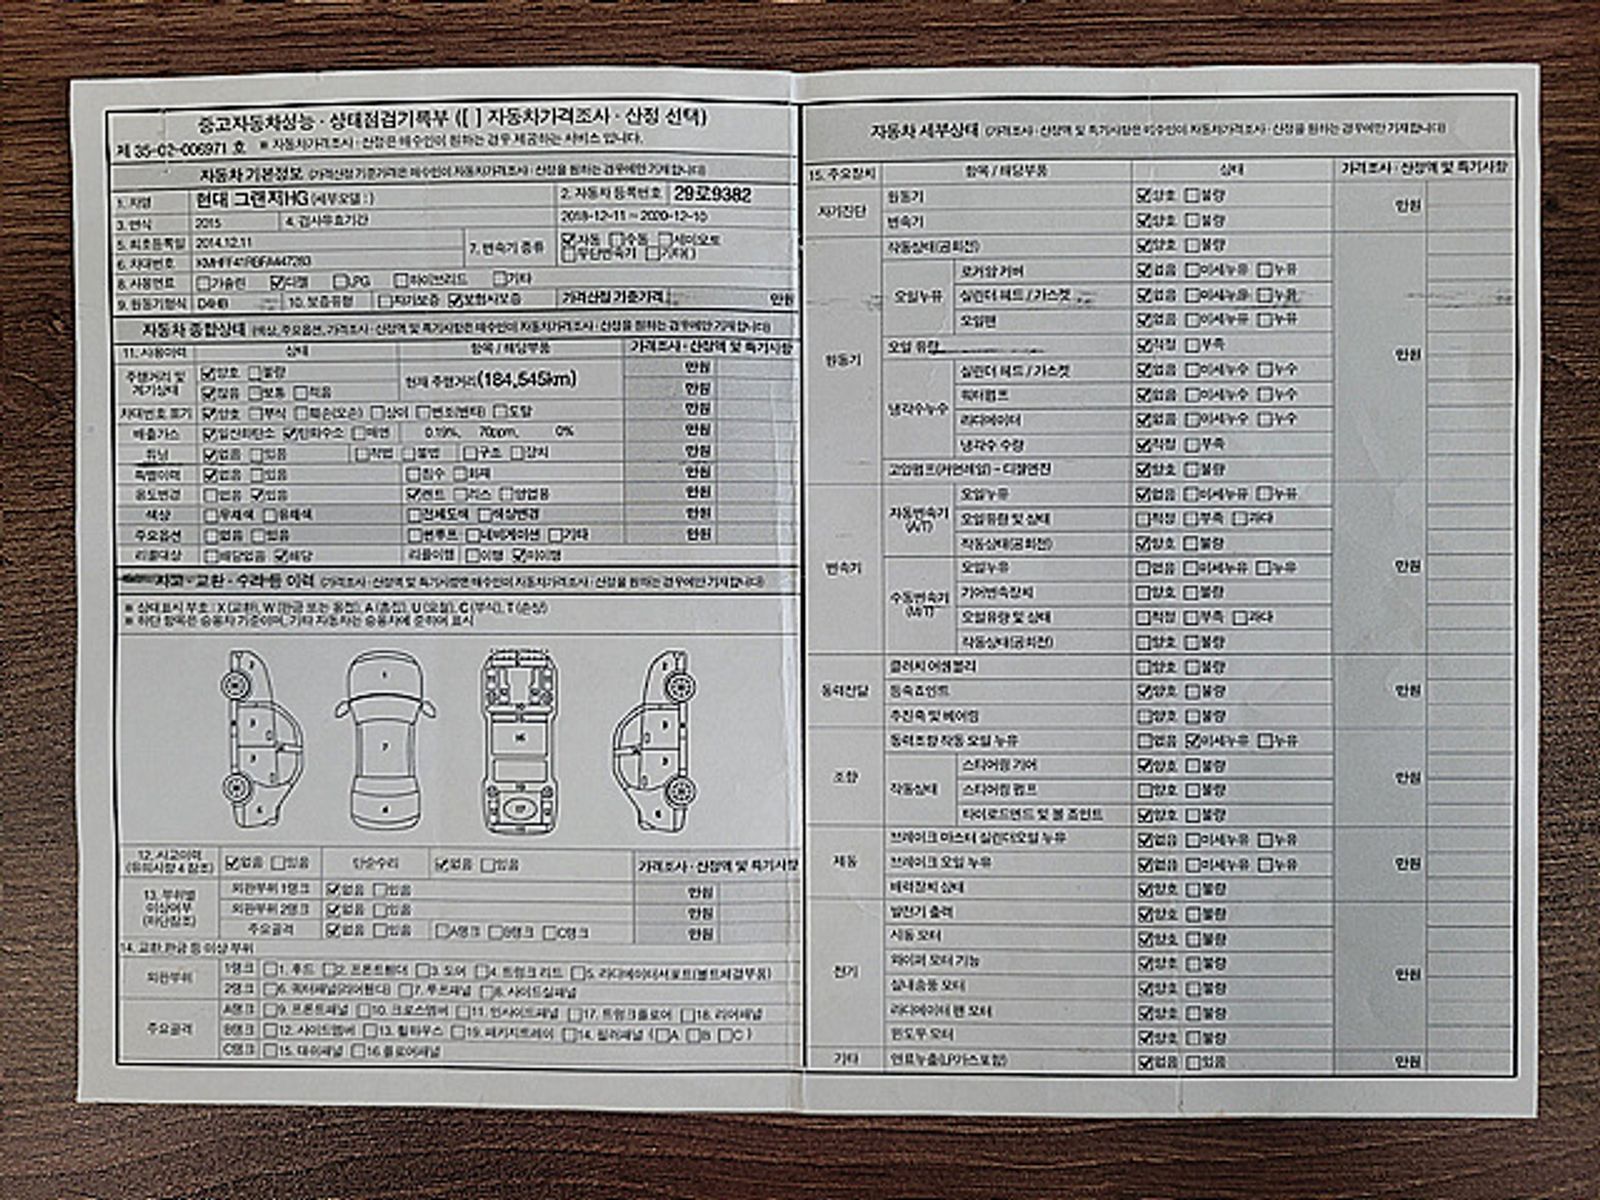 중고자동차성능 · 상태점검기록부 ([ ] 자동차가격조사 · 산정 선택)
제 35-02-006971 호 ※ 자동차가격조사 · 산정은 매수인이 원하는 경우 제공하는 서비스 입니다.
자동차 기본정보 (가격산정 기준가격은 매수인이 자동차가격조사 · 산정을 원하는 경우에만 기재합니다)
1. 차명 현대 그랜저HG (세부모델 : ) 2. 자동차 등록번호 29로9382
3. 연식 2015 4. 검사유효기간 2018-12-11 ~ 2020-12-10
5. 최초등록일 2014.12.11 7. 변속기 종류 ☑자동 ☐수동 ☐세미오토
☐무단변속기 ☐기타( )
6. 차대번호
8. 사용연료 ☐가솔린 ☑디젤 ☐LPG ☐하이브리드 ☐기타
9. 원동기형식 D4HB 10. 보증유형 ☐자가보증 ☑보험사보증 가격산정 기준가격 만원
자동차 종합상태 (색상, 주요옵션, 가격조사 · 산정액 및 특기사항은 매수인이 자동차가격조사 · 산정을 원하는 경우에만 기재합니다)
11. 사용이력 상태 항목 / 해당부품 가격조사 · 산정액 및 특기사항
주행거리 및 계기상태 ☑양호 ☐불량 현재 주행거리(184,545km) 만원
☑많음 ☐보통 ☐적음 만원
차대번호 표기 ☑양호 ☐부식 ☐훼손(오손) ☐상이 ☐변조(변타) ☐도말 만원
배출가스 ☑일산화탄소 ☑탄화수소 ☐매연 0.19%, 70ppm, 0% 만원
튜닝 ☑없음 ☐있음 ☐적법 ☐불법 ☐구조 ☐장치 만원
특별이력 ☑없음 ☐있음 ☐침수 ☐화재 만원
용도변경 ☐없음 ☑있음 ☑렌트 ☐리스 ☐영업용 만원
색상 ☐무채색 ☐유채색 ☐전체도색 ☐색상변경 만원
주요옵션 ☐없음 ☐있음 ☐썬루프 ☐네비게이션 ☐기타 만원
리콜대상 ☐해당없음 ☑해당 리콜이행 ☐이행 ☑미이행
사고 · 교환 · 수리 등 이력 (가격조사 · 산정액 및 특기사항은 매수인이 자동차가격조사 · 산정을 원하는 경우에만 기재합니다)
※ 상태표시 부호 : X (교환), W (판금 또는 용접), A (흠집), U (요철), C (부식), T (손상)
※ 하단 항목은 승용차 기준이며, 기타 자동차는 승용차에 준하여 표시
12. 사고이력 (유의사항 4 참조) ☑없음 ☐있음 단순수리 ☑없음 ☐있음 가격조사 · 산정액 및 특기사항
13. 부위별 이상여부 (하단참조) 외판부위 1랭크 ☑없음 ☐있음 만원
외판부위 2랭크 ☑없음 ☐있음 만원
주요골격 ☑없음 ☐있음 ☐A랭크 ☐B랭크 ☐C랭크 만원
14. 교환,판금 등 이상 부위
외판부위 1랭크 ☐1. 후드 ☐2. 프론트휀더 ☐3. 도어 ☐4. 트렁크 리드 ☐5. 라디에이터서포트(볼트체결부품)
2랭크 ☐6. 쿼터패널(리어휀다) ☐7. 루프패널 ☐8. 사이드실패널
주요골격 A랭크 ☐9. 프론트패널 ☐10. 크로스멤버 ☐11. 인사이드패널 ☐17. 트렁크플로어 ☐18. 리어패널
B랭크 ☐12. 사이드멤버 ☐13. 휠하우스 ☐19. 패키지트레이 ☐14. 필러패널 (☐A ☐B ☐C )
C랭크 ☐15. 대쉬패널 ☐16. 플로어패널
자동차 세부상태 (가격조사 · 산정액 및 특기사항은 매수인이 자동차가격조사 · 산정을 원하는 경우에만 기재합니다)
15. 주요장치 항목 / 해당부품 상태 가격조사 · 산정액 및 특기사항
자기진단 원동기 ☑양호 ☐불량 만원
변속기 ☑양호 ☐불량
원동기 작동상태(공회전) ☑양호 ☐불량 만원
오일누유 로커암 커버 ☑없음 ☐미세누유 ☐누유
실린더 헤드 / 가스켓 ☑없음 ☐미세누유 ☐누유
오일팬 ☑없음 ☐미세누유 ☐누유
오일 유량 ☑적정 ☐부족
냉각수누수 실린더 헤드 / 가스켓 ☑없음 ☐미세누수 ☐누수
워터펌프 ☑없음 ☐미세누수 ☐누수
라디에이터 ☑없음 ☐미세누수 ☐누수
냉각수 수량 ☑적정 ☐부족
고압펌프(커먼레일) - 디젤엔진 ☑양호 ☐불량
변속기 자동변속기 (A/T) 오일누유 ☑없음 ☐미세누유 ☐누유 만원
오일유량 및 상태 ☐적정 ☐부족 ☐과다
작동상태(공회전) ☑양호 ☐불량
수동변속기 (M/T) 오일누유 ☐없음 ☐미세누유 ☐누유
기어변속장치 ☐양호 ☐불량
오일유량 및 상태 ☐적정 ☐부족 ☐과다
작동상태(공회전) ☐양호 ☐불량
동력전달 클러치 어셈블리 ☐양호 ☐불량 만원
등속죠인트 ☑양호 ☐불량
추진축 및 베어링 ☐양호 ☐불량
조향 동력조향 작동 오일 누유 ☐없음 ☑미세누유 ☐누유 만원
작동상태 스티어링 기어 ☑양호 ☐불량
스티어링 펌프 ☐양호 ☐불량
타이로드엔드 및 볼 죠인트 ☑양호 ☐불량
제동 브레이크 마스터 실린더오일 누유 ☑없음 ☐미세누유 ☐누유 만원
브레이크 오일 누유 ☑없음 ☐미세누유 ☐누유
배력장치 상태 ☑양호 ☐불량
전기 발전기 출력 ☑양호 ☐불량 만원
시동 모터 ☑양호 ☐불량
와이퍼 모터 기능 ☑양호 ☐불량
실내송풍 모터 ☑양호 ☐불량
라디에이터 팬 모터 ☑양호 ☐불량
윈도우 모터 ☑양호 ☐불량
기타 연료누출(LP가스포함) ☑없음 ☐있음 만원